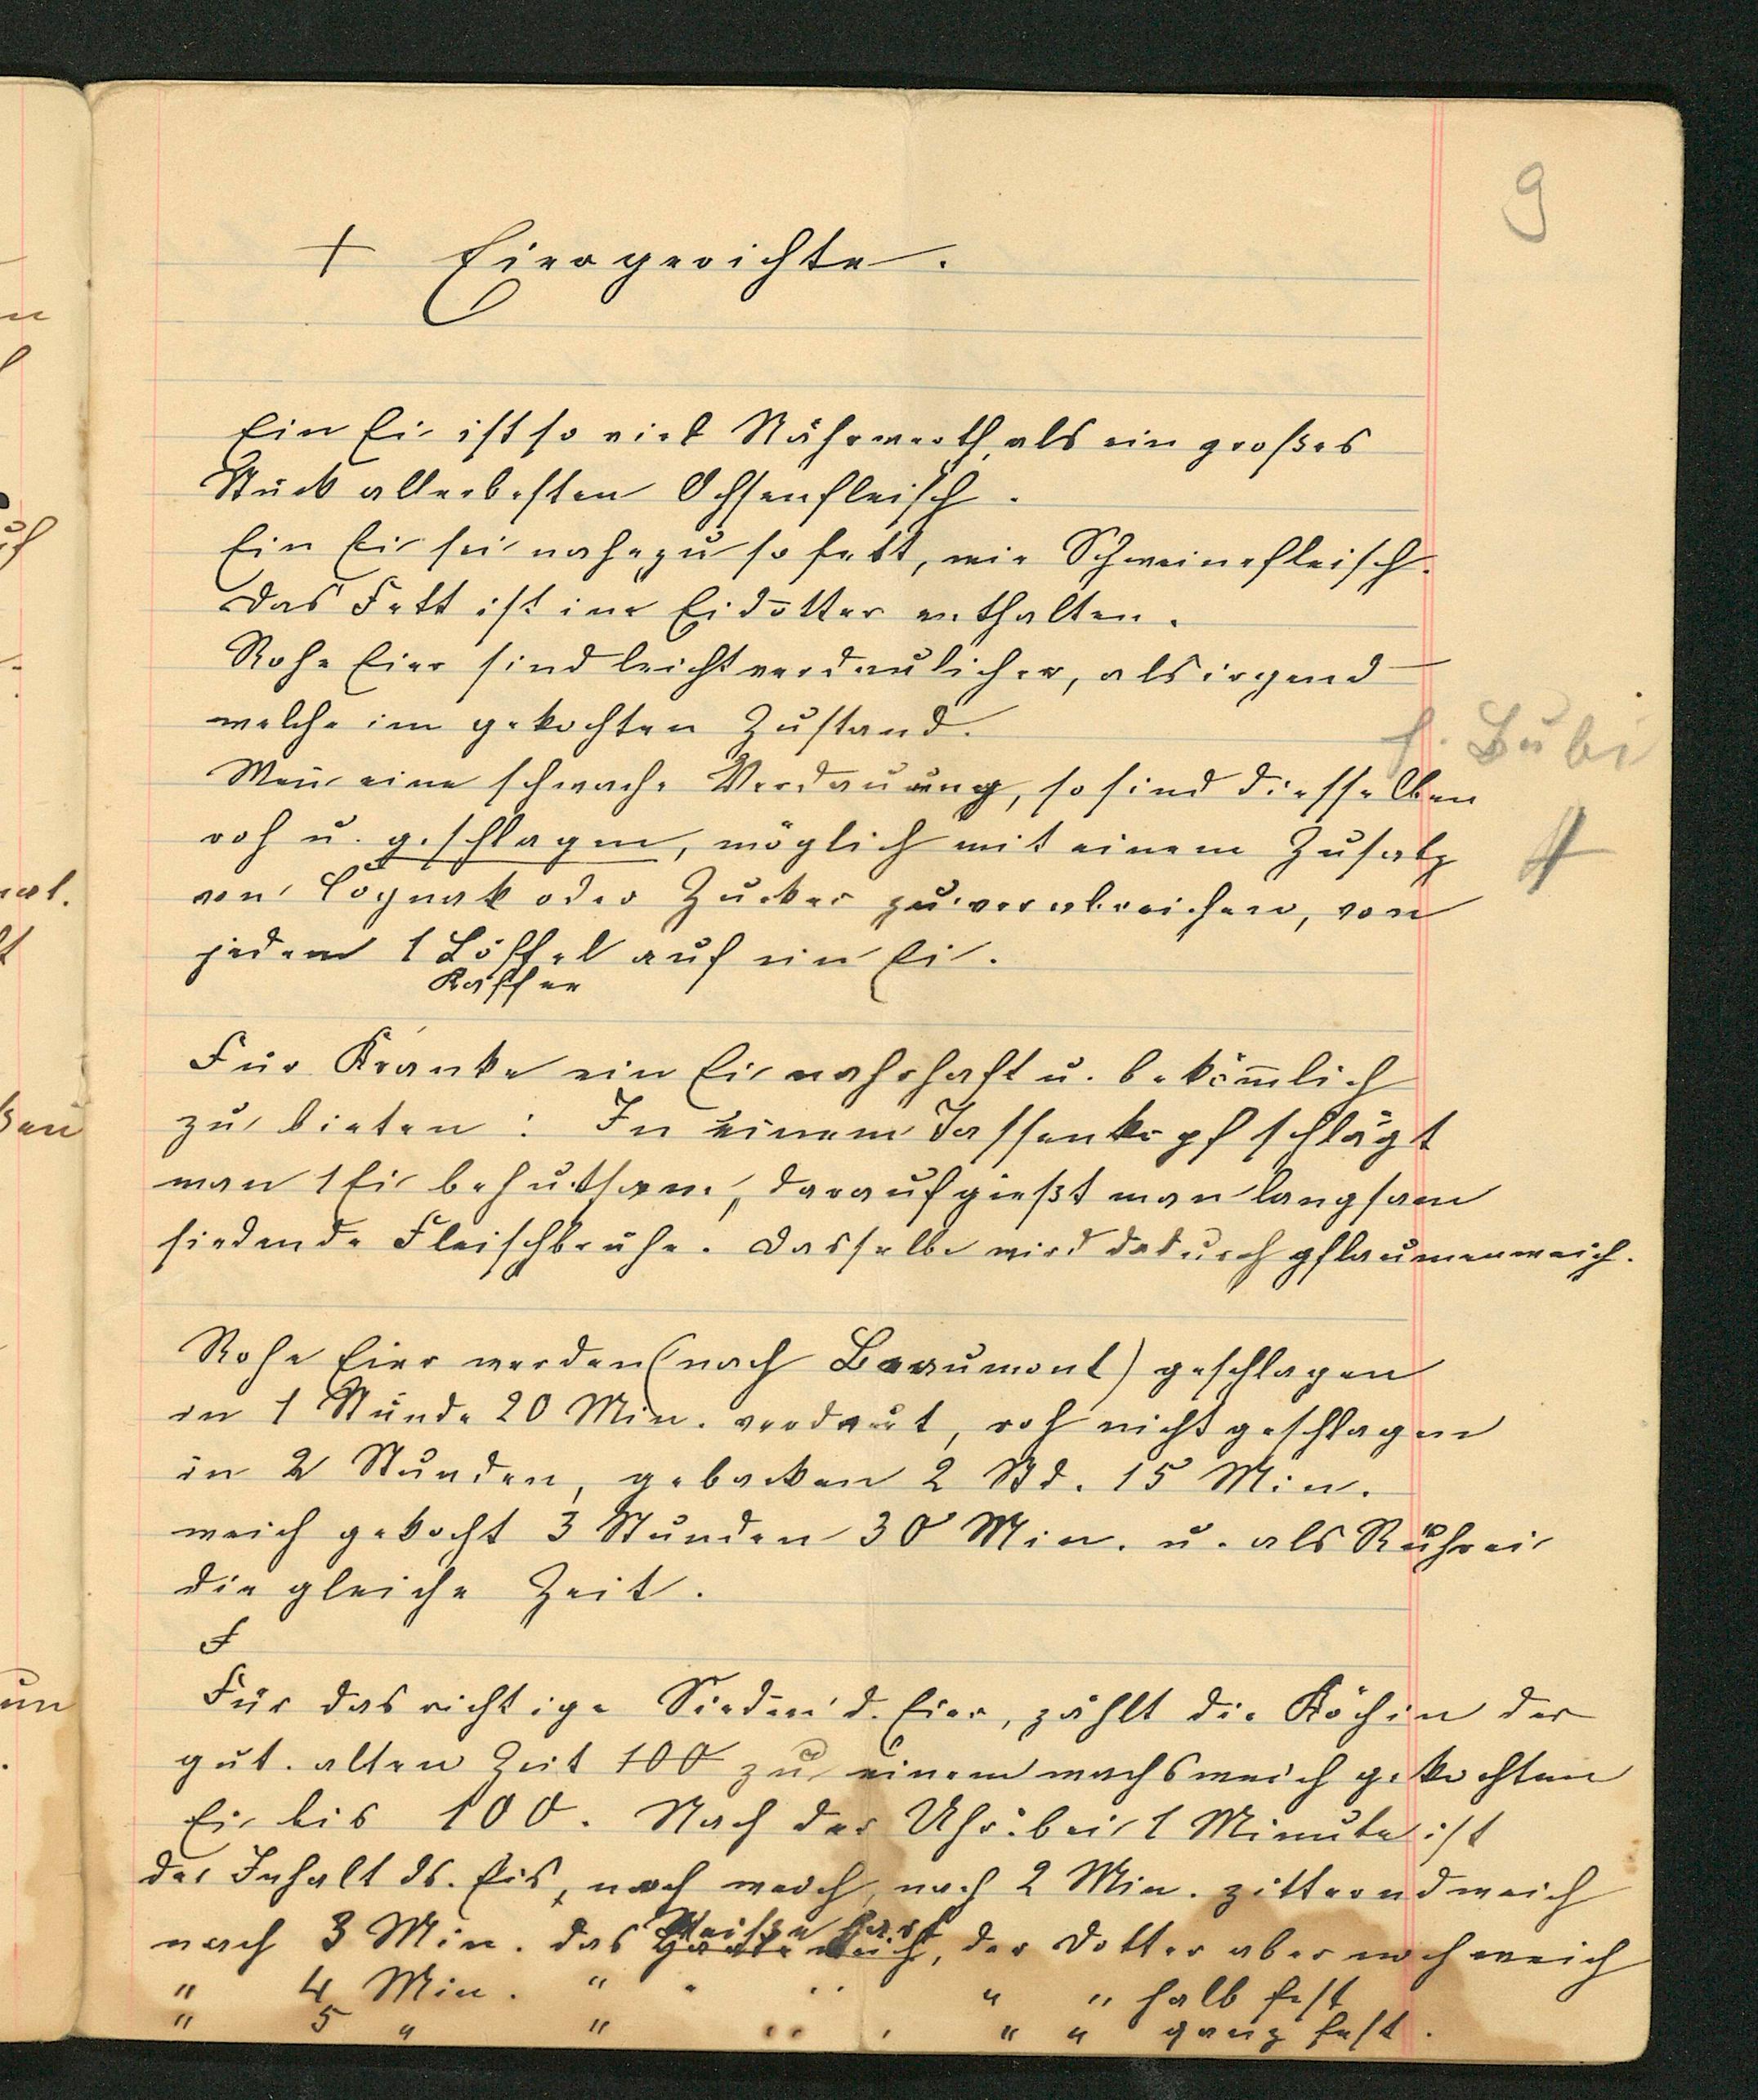 9
+ Eiergerichte.
Ein Ei ist so viel Nährwerth, als ein großes
Stück allerbesten Ochsenfleisch.
Ein Ei sei nahezu so fett, wie Schweinefleisch.
Das Fett ist im Eidotter enthalten.
Rohe Eier sind leichtverdaulicher, als irgend
welche im gekochten Zustand.
f. Bubi
eine schwache Verdauung, so sind diesselben
roh u. geschlagen, möglich mit einem Zusatz
von Cognak oder Zucker zu verabreichen, von
jedem 1 Löffel auf ein Ei.
Kaffee
Für Kranke ein Ei nahrhaft u. bekömlich
zu bieten: In einem Tassenkopf schlägt
man 1 Ei behutsam, darauf gießt man langsam
siedende Fleischbrühe. Dasselbe wird dadurch pflaumenweich.
Rohe Eier werden (nach Beaumont) geschlagen
in 1 Stunde 20 Min. verdaut, roh nicht geschlagen
in 2 Stunden, gebacken 2 Std. 15 Min.
weich gekocht 3 Stunden 30 Min. u. als Rührei
die gleiche Zeit.
F
Für das richtige Sieden d. Eier, zählt die Köchin der
gut. alten Zeit 100 zu einem wachsweich gekochten
Ei bis 100. Nach der Uhr: bei 1 Minute ist
der Inhalt ds. Eis, noch weich, nach 2 Min. zitterndweich
Weiße hart
nach 3 Min. das Harte weich, der Dotter aber noch weich
" 4 Min. " " " " " halb fest
" 5 " " " " " " ganz fest.